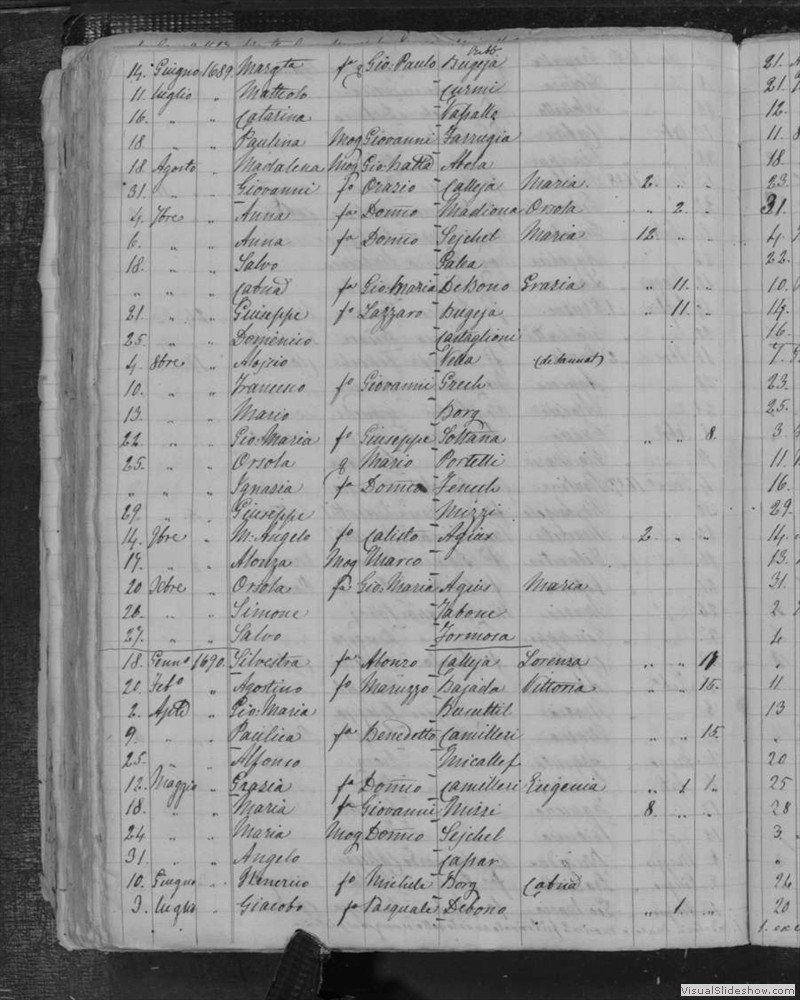 14. Giugno 1689. Margta fa q Gio: Paulo Bugeja
11. luglio " Matteolo Curmi
16. " " Catarina Vassallo
18. " " Paulina Mog Giovanni Farrugia
18. Agosto " Madalena Mog Gio: Batta Abela
31. " " Giovanni fo Orazio Calleja Maria. 2. " "
4. 7bre " Anna fa Domco Madiona Orsola " 2. "
6. " " Anna fa Domco Sejchel Maria 12. " "
18. " " Salvo Galea
" " " Catna fa Gio: Maria DeBono Grazia " 11. "
21. " " Giuseppe fo Lazzaro Bugeja " 11. "
25. " " Domenico Castaglioni
4. 8bre " Alojsio Vella
10. " " Franceso fo Giovanni Grech
13. " " Mario Borg
22. " " Gio: Maria fo Giuseppe Soltana " " 8.
25. " " Orsola q Mario Portelli
" " " Ignazia fa Domco Fenech
29. " " Giuseppe Mizzi
14. 9bre " M: Angelo fo Calisto Agius 2. " "
17. " " Alonza Mog Marco
20 Xbre " Orsola fa Gio: Maria Agius Maria
26. " " Simone Tabone
27. " " Salvo Formosa
18. Genno 1690. Silvestra fa Alonzo Calleja Lorenza " "
20. Febo " Agostino fo Maruzzo Bajada Vittoria " " 15.
2. Aple " Gio: Maria Busuttil
9. " " Paulica fa Benedetto Camilleri " " 15.
25. " " Alfonso Micallef
12. Maggio " Grazia fa Domco Camilleri Eugenia " 1 1.
18. " " Maria fa Giovanni Mizzi 8. " "
24 " " Maria Mog Domco Sejchel
31. " " Angelo Caspar
10. Giugno " fo Michele Borg Catna
3. luglio " Giacobo fo Pasquale Debono " 1. "
21.
21.
12.
11.
18.
23.
31.
4.
22.
10.
14.
16.
7.
23.
25.
3.
11.
16.
29.
14
13.
31.
2.
4
"
11
13
"
20
25
28
3.
"
26
20
VisualSlideshow.com